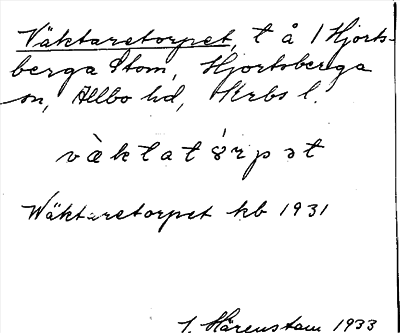 Väktaretorpet, t å 1 Hjorts-
berga Stom, Hjortsberga
sn, Allbo hd, Krbs l.
vàktatórpət
Wäktaretorpet kb 1931
J. Härenstam 1933